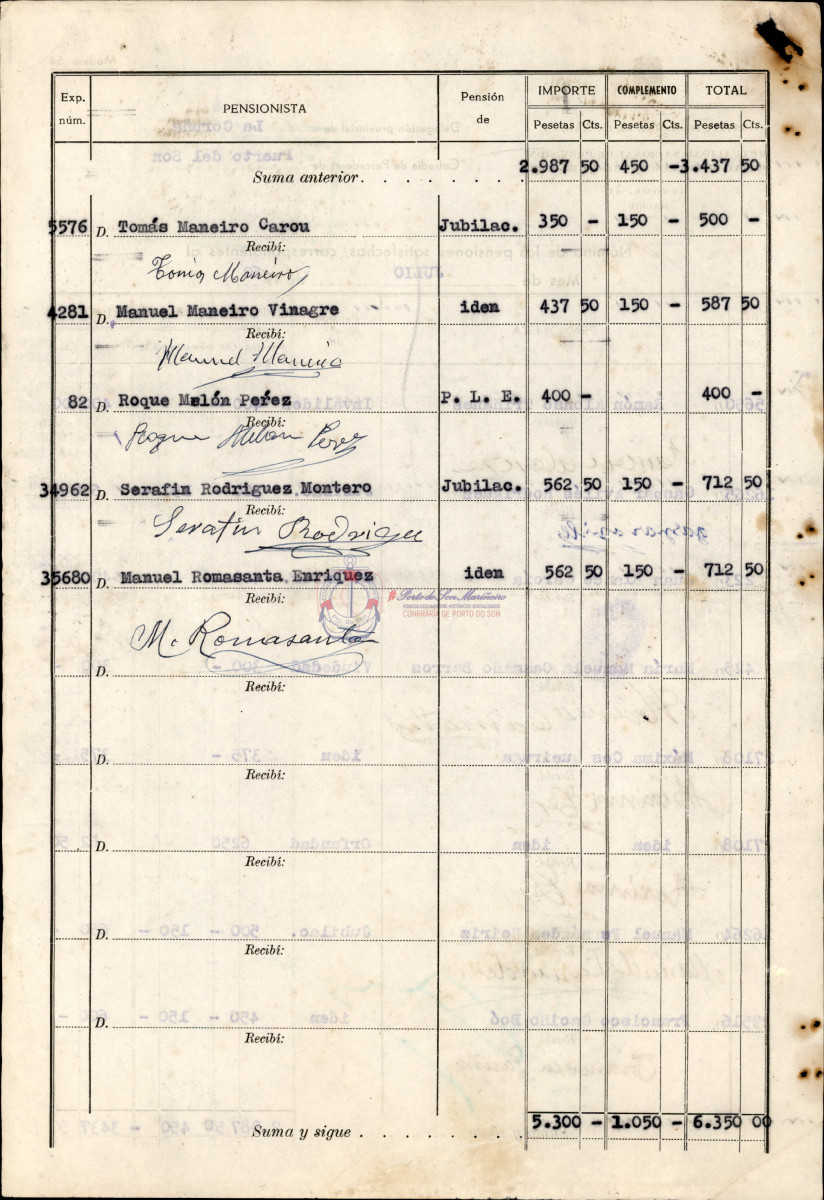 Exp. núm. PENSIONISTA Pensión de IMPORTE COMPLEMENTO TOTAL
Pesetas Cts. Pesetas Cts. Pesetas Cts.
Suma anterior. 2.987 50 450 -3.437 50
5576 D. Tomás Maneiro Carou Jubilac. 350 - 150 - 500 -
Recibí:
Tomás Maneiro
4281 D. Manuel Maneiro Vinagre iden 437 50 150 - 587 50
Recibí:
Manuel Maneiro
82 D. Roque Melón Peŕez P. L. E. 400 - 400 -
Recibí:
Roque Melon Perez
34962 D. Serafin Rodriguez Montero Jubilac. 562 50 150 - 712 50
Recibí:
Serafin Rodrigu
35680 D. Manuel Romasanta Enriquez iden 562 50 150 - 712 50
Recibí:
#Porto do Son Mariñeiro
FONDOS DOCUMENTAIS HISTÓRICOS DIXITALIZADOS
CONFRARÍA DE PORTO DO SON
M. Romasanta
D.
Recibí:
D.
Recibí:
D.
Recibí:
D.
Recibí:
D.
Recibí:
Suma y sigue 5.300 - 1.050 - 6.350 00